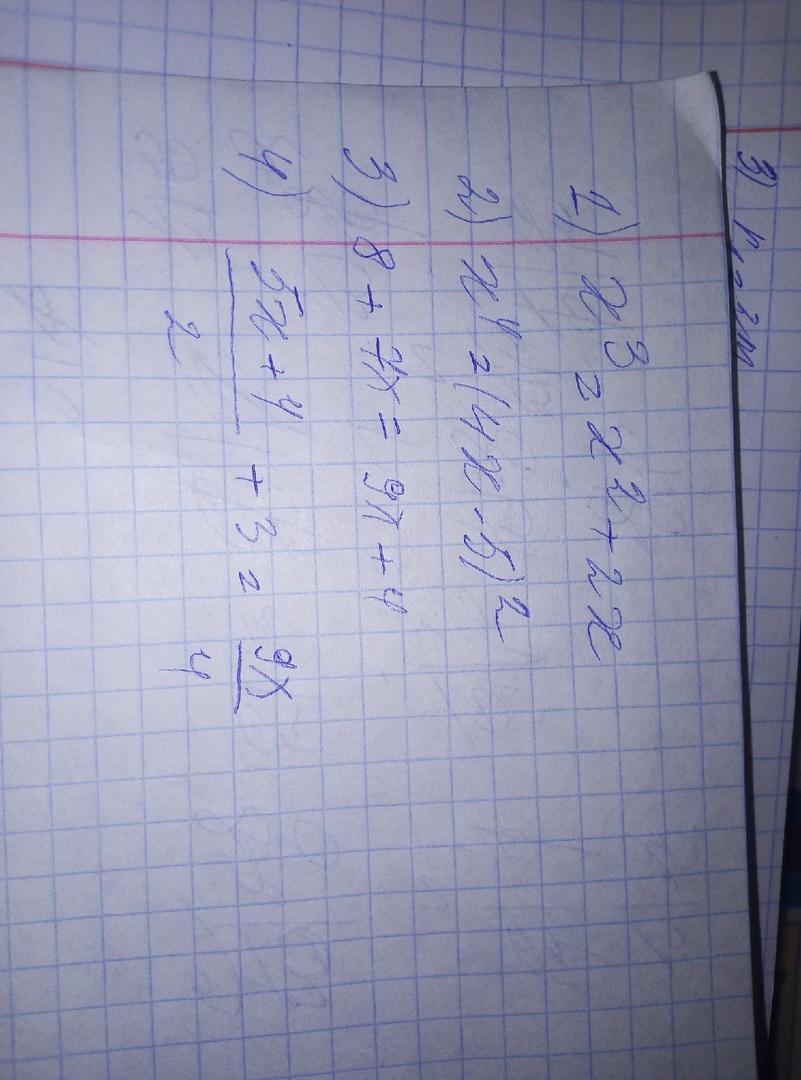 1) x³ = x² + 2x
2) x⁴ = (4x - 5)²
3) 8 + 7x = 9x + 4
4) (5x + 4)/2 + 3 = 9x/4
3)